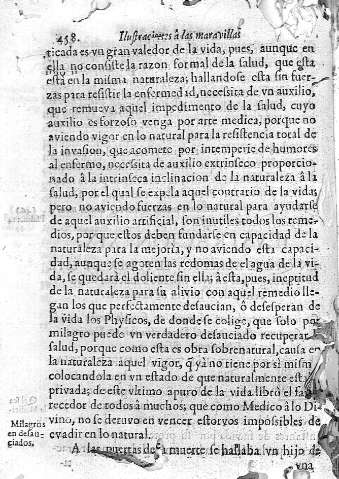 458. Ilustraciones à las maravillas
ticada es vn gran valedor de la vida, pues, aunque en
ella no consiste la razon formal de la salud, que esta
està en la misma naturaleza; hallandose esta sin fuer-
zas para resistir la enfermedad, necessita de vn auxilio,
que remueva aquel impedimento de la salud, cuyo
auxilio es forzoso venga por arte medica, porque no
aviendo vigor en lo natural para la resistencia total de
la invasion, que acomete por intemperie de humores
al enfermo, necessita de auxilio extrinseco proporcio-
nado à la intrinseca inclinacion de la naturaleza à la
salud, por el qual se expela aquel contrario de la vida;
pero no aviendo fuerzas en lo natural para ayudarse
de aquel auxilio artificial, son inutiles todos los reme-
dios, por que estos deben fundarse en capacidad de la
naturaleza para la mejorìa, y no aviendo esta capaci-
dad, aunque se agoten las redomas de el agua de la vi-
da, se quedarà el doliente sin ella; à esta, pues, ineptitud
de la naturaleza para su alivio con aquel remedio lle-
gan los que perfectamente desaucian, ò desesperan de
la vida los Physicos, de donde se colige, que solo por
milagro puede vn verdadero desauciado recuperar
salud, porque como esta es obra sobrenatural, causa en
la naturaleza aquel vigor, q̃ yà no tiene por si mism
colocandola en vn estado de que naturalmente està
privada; de este vltimo apuro de la vida librò el fa
recedor de todos à muchos, que como Medico à lo Di
vino, no se detuvo en vencer estorvos impossibles de
evadir en lo natural.
Milagros
en desau-
ciados.
A las puertas de la muerte se hallaba vn hijo de
vna